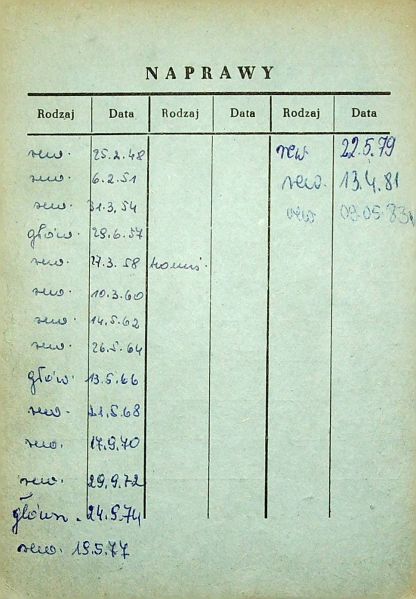 NAPRAWY
Rodzaj Data Rodzaj Data Rodzaj Data
rew. 25.2.48 rew. 22.5.79
rew. 6.2.51 rew. 13.4.81
rew. 31.3.54 rew 09.05.83
głów. 29.6.57
rew. 27.3.58
rew. 10.3.60
rew. 14.5.62
rew. 26.5.64
głów. 13.5.66
rew. 21.5.68
rew. 17.9.70
rew. 29.9.72
główn. 24.5.74
rew. 19.5.77